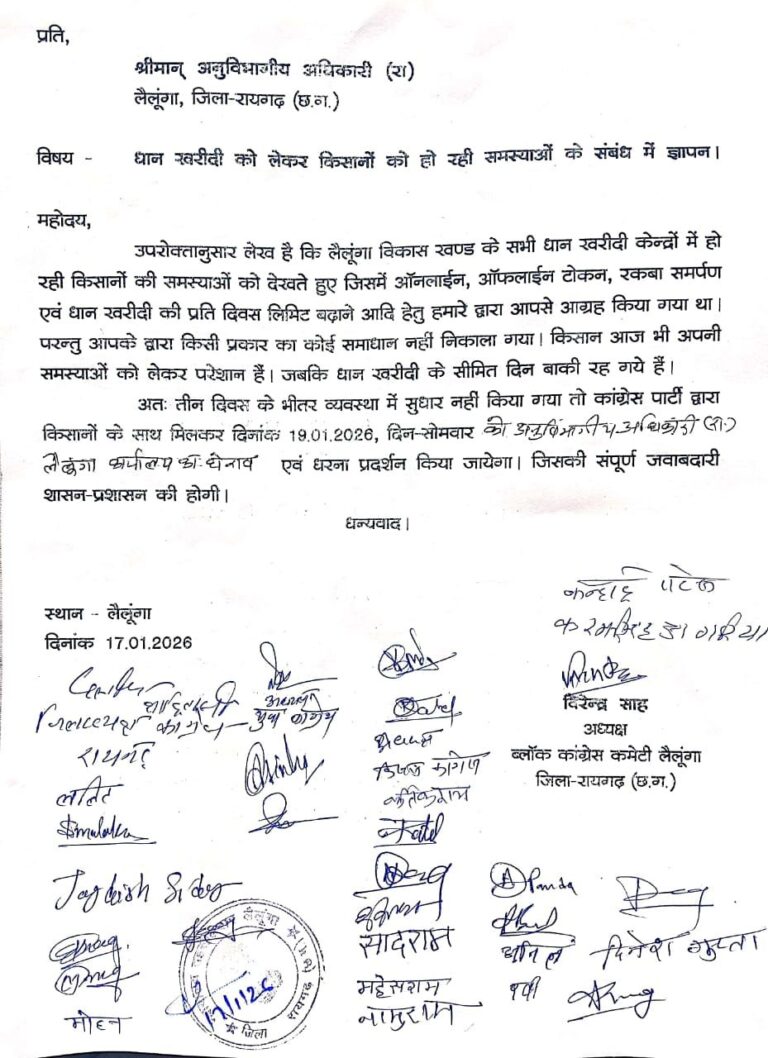 प्रति,
श्रीमान् अनुविभागीय अधिकारी (रा)
लैलूंगा, जिला-रायगढ़ (छ.ग.)
विषय - धान खरीदी को लेकर किसानों को हो रही समस्याओं के संबंध में ज्ञापन।
महोदय,
उपरोक्तानुसार लेख है कि लैलूंगा विकास खण्ड के सभी धान खरीदी केन्द्रों में हो
रही किसानों की समस्याओं को देखते हुए जिसमें ऑनलाईन, ऑफलाईन टोकन, रकबा समर्पण
एवं धान खरीदी की प्रति दिवस लिमिट बढ़ाने आदि हेतु हमारे द्वारा आपसे आग्रह किया गया था।
परन्तु आपके द्वारा किसी प्रकार का कोई समाधान नहीं निकाला गया। किसान आज भी अपनी
समस्याओं को लेकर परेशान हैं। जबकि धान खरीदी के सीमित दिन बाकी रह गये हैं।
अतः तीन दिवस के भीतर व्यवस्था में सुधार नहीं किया गया तो कांग्रेस पार्टी द्वारा
किसानों के साथ मिलकर दिनांक 19.01.2026, दिन-सोमवार को अनुविभागीय अधिकारी (रा.)
लैलूंगा कार्यालय का घेराव एवं धरना प्रदर्शन किया जायेगा। जिसकी संपूर्ण जवाबदारी
शासन-प्रशासन की होगी।
धन्यवाद।
स्थान - लैलूंगा
दिनांक 17.01.2026
पटेल
दिरेन्द्र साह
अध्यक्ष
ब्लॉक कांग्रेस कमेटी लैलूंगा
जिला-रायगढ़ (छ.ग.)
रायगढ़
ललित
कार्तिकराम
Patel
Jagdish Sidar
Panda
सादराम
दिनेश गुप्ता
महेसराम
मोहन
लैलूंगा
रायगढ़
जिला
17/1/26